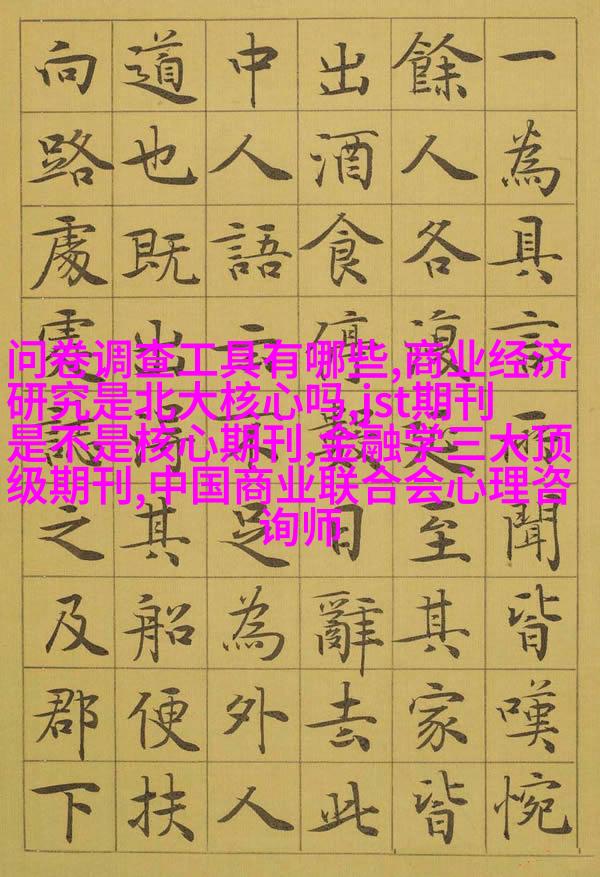 一為具言所聞皆嘆惋
餘人各復延至其家皆
出酒食停數日辭去此
中人語云不足為外人
道也既出得其船便扶
向路處處誌之及郡下
问卷调查工具有哪些,商业经济
研究是北大核心吗,jst期刊
是不是核心期刊,金融学三大顶
级期刊,中国商业联合会心理咨
询师